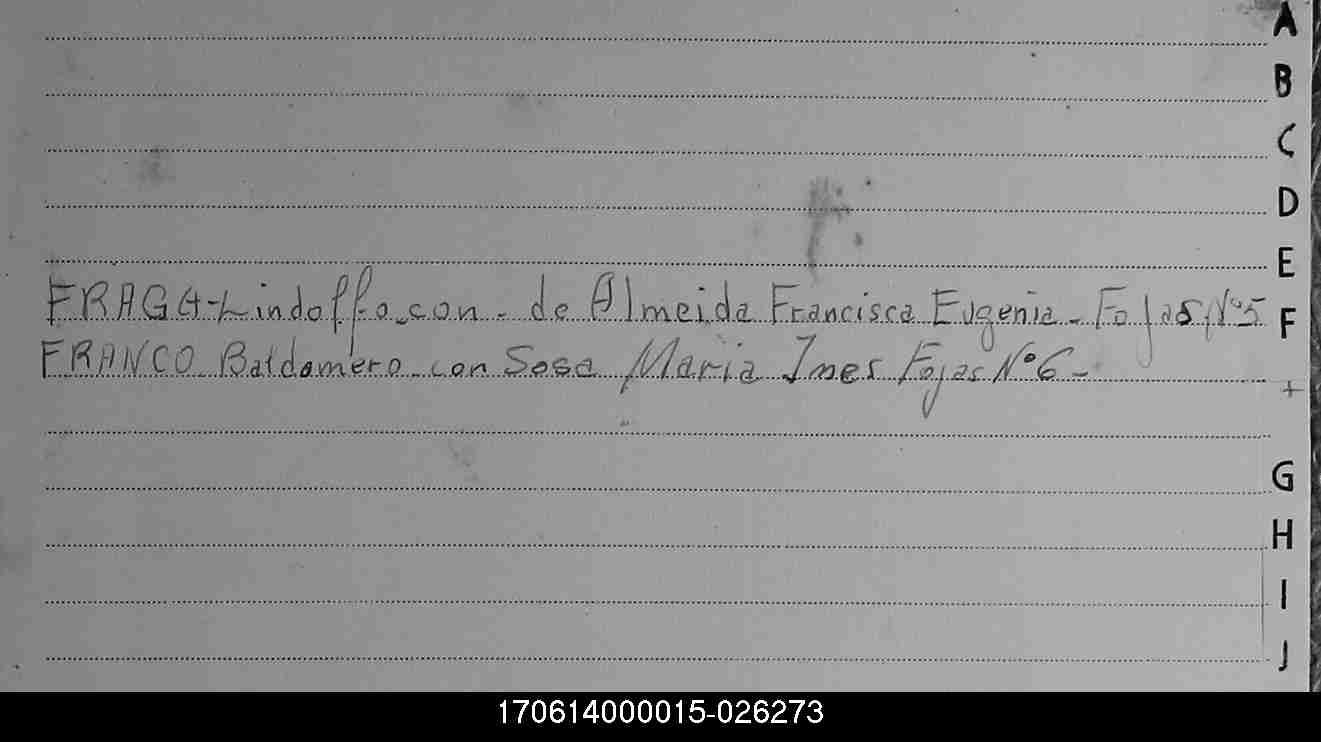 A
B
C
D
E
FRAGA-Lindolfo-con-de Almeida Francisca Eugenia-Fojas Nº5
F
FRANCO Baldomero con Sosa Maria Ines Fojas Nº6-
+
G
H
I
J
170614000015-026273